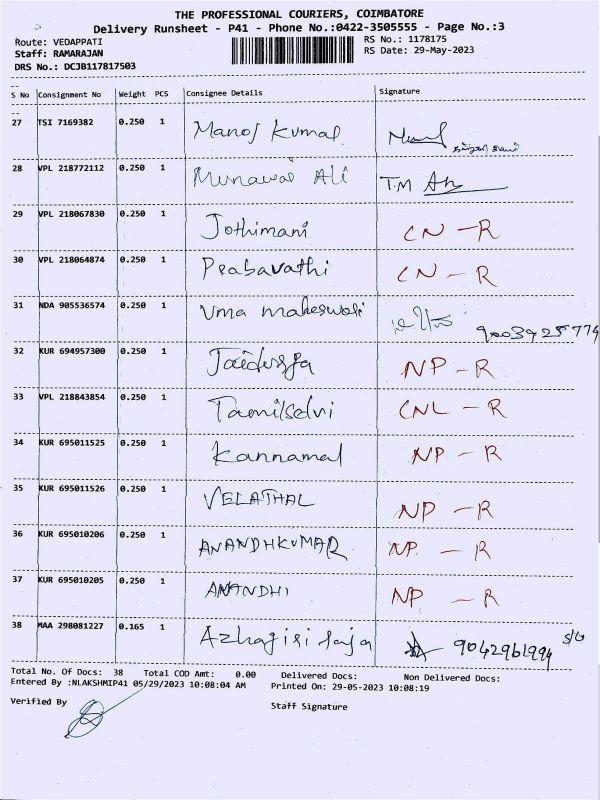 THE PROFESSIONAL COURIERS, COIMBATORE
Delivery Runsheet - P41 - Phone No.:0422-3505555 - Page No.:3
Route: VEDAPPATI RS No.: 1178175
Staff: RAMARAJAN RS Date: 29-May-2023
DRS No.: DCJB117817503
S No Consignment No Weight PCS Consignee Details Signature
27 TSI 7169382 0.250 1 Manoj Kumar
28 VPL 218772112 0.250 1 Munawar Ali T.M
29 VPL 218067830 0.250 1 Jothimani CN - R
30 VPL 218064874 0.250 1 Prabavathi CN - R
31 NDA 905536574 0.250 1 Uma maheswari 9003925774
32 KUR 694957300 0.250 1 NP - R
33 VPL 218843854 0.250 1 Tamilselvi CNL - R
34 KUR 695011525 0.250 1 Kannamal NP - R
35 KUR 695011526 0.250 1 VELATHAL NP - R
36 KUR 695010206 0.250 1 ANANDHKUMAR NP - R
37 KUR 695010205 0.250 1 ANANDHI NP - R
38 MAA 298081227 0.165 1 Azhagiri raja 9042961994 S/O
Total No. Of Docs: 38 Total COD Amt: 0.00 Delivered Docs: Non Delivered Docs:
Entered By :NLAKSHMIP41 05/29/2023 10:08:04 AM Printed On: 29-05-2023 10:08:19
Verified By
Staff Signature